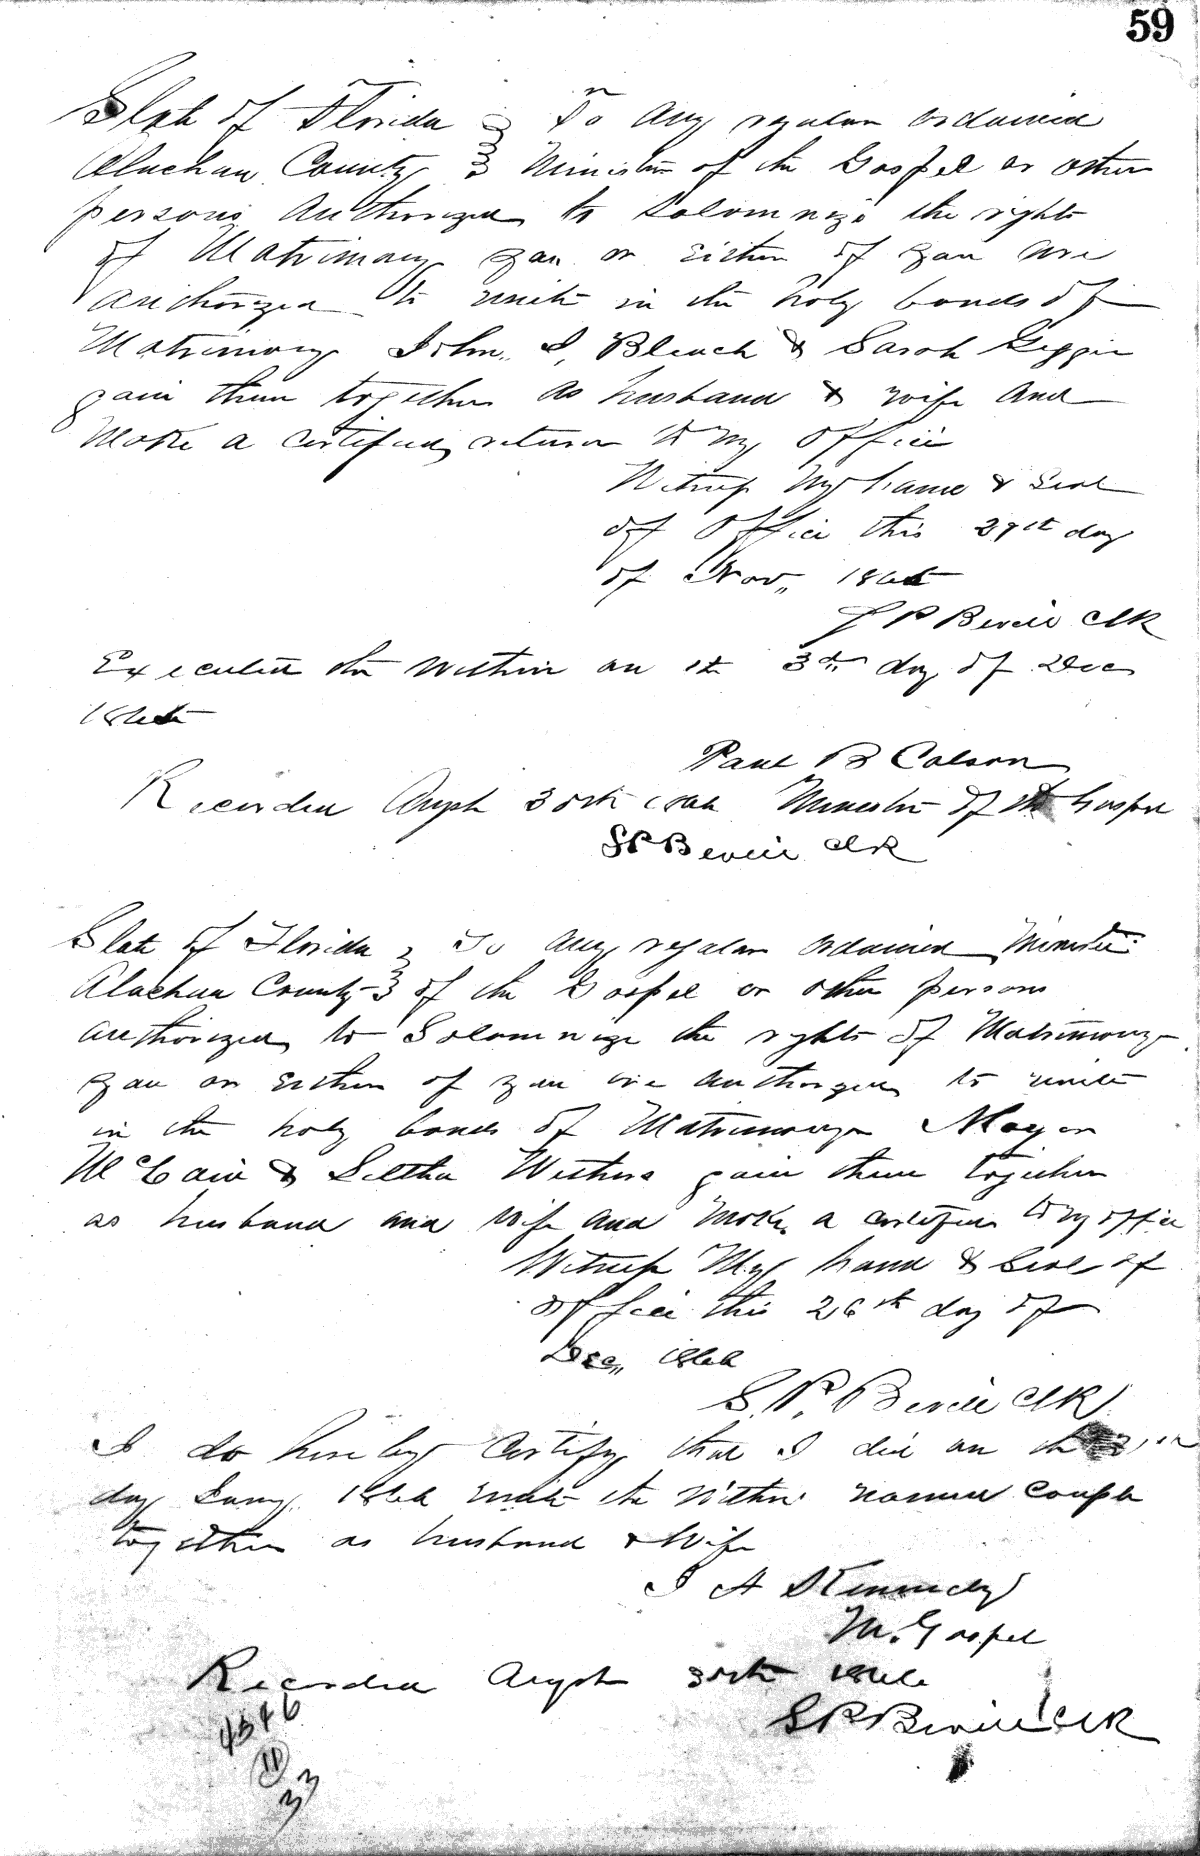 59
State of Florida } To Any regular ordained
Alachua County } Minister of the Gospel or other
persons Authorized to Solomnize the rights
of Matrimony you or Either of you are
authorized to unite in the holy bonds of
Matrimony John I, Bleach & Sarah
join them together as husband & wife And
Make a certified return to my office
Witness My hand & Seal
of Office this 29th day
of Nov,, 1865
S P Bevill Clk
Executed the within on the 3th day of Dec
1865
Paul B Colson
Recorded Augst 30th 1866 Minister of the Gospel
S P Bevill Clk
State of Florida } To Any regular ordained Minister
Alachua County } of the Gospel or other persons
authorized to Solomnize the rights of Matrimony
you or Either of you are authorized to unite
in the holy bonds of Matrimony
McCain & Withers join them together
as husband and wife and Make a certified to my office
Witness My hand & Seal of
office this 26th day of
Dec,, 1866
S. P. Bevill Clk
I do hereby Certify that I did on the
day Jany 1866 unite the within named Couple
together as husband & Wife
J A Kennedy
M. Gospel
Recorded Augst 30th 1866
S P Bevill Clk
4546
11
33